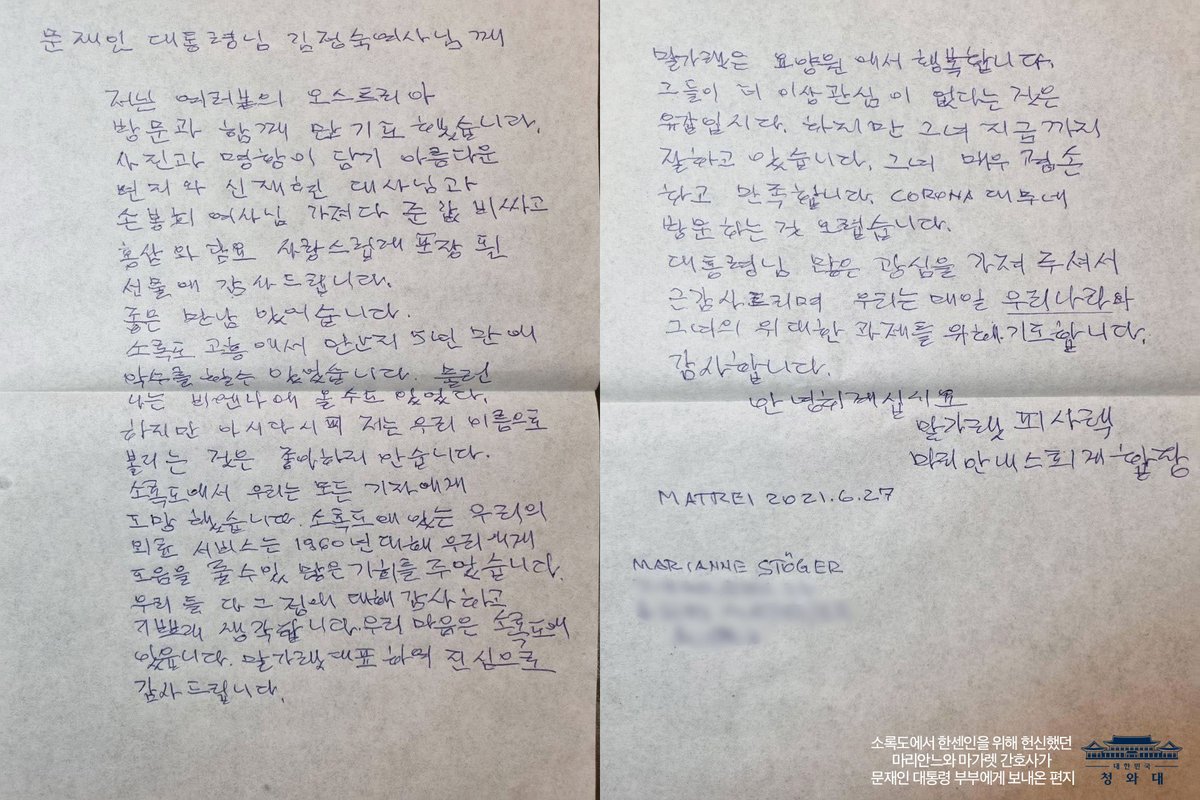 문재인 대통령님 김정숙여사님께
저는 여러분의 오스트리아
방문과 함께 만기뻐 했습니다.
사진과 명함이 담기 아름다운
편지와 신재현 대사님과
손봉희 여사님 가져다 준 값 비싸고
홍삼와 담요 사랑스럽게 포장 된
선물에 감사드립니다.
좋은 만남 있어습니다.
소록도 고흥에서 만난지 5년 만에
악수를 할수 있었습니다. 물런
나는 비엔나에 올수도 있었다.
하지만 아시다시피 저는 우리 이름으로
불리는 것은 좋아하지 안습니다.
소록도에서 우리는 모든 기자에게
도망 했습니다. 소록도에 있는 우리의
의료 서비스는 1960년대에 우리에게
도움을 줄수있 많은 기회를 주었습니다.
우리 둘 다 그 점에 대해 감사하고
기쁘게 생각합니다. 우리 마음은 소록도에
있읍니다. 말가렛대표 하여 진심으로
감사드립니다.
말가렛은 요양원에서 행복합니다.
그들이 더 이상관심이 없다는 것은
유감입시다. 하지만 그녀 지금까지
잘하고 있습니다. 그녀 매우 겸손
하고 만족합니다. CORONA 대문에
방문하는 것 오렵습니다.
대통령님 많은 관심을 가져 주셔서
근감사드리며 우리는 매일 우리나라와
그녀의 위대한 과제를 위해 기도합니다.
감사합니다.
안녕히계십시요
말가렛 피사렉
마리안내스퇴게 할망
MATREI 2021.6.27
MARIANNE STÖGER
소록도에서 한센인을 위해 헌신했던
마리안느와 마가렛 간호사가
문재인 대통령 부부에게 보내온 편지
대한민국
청와대